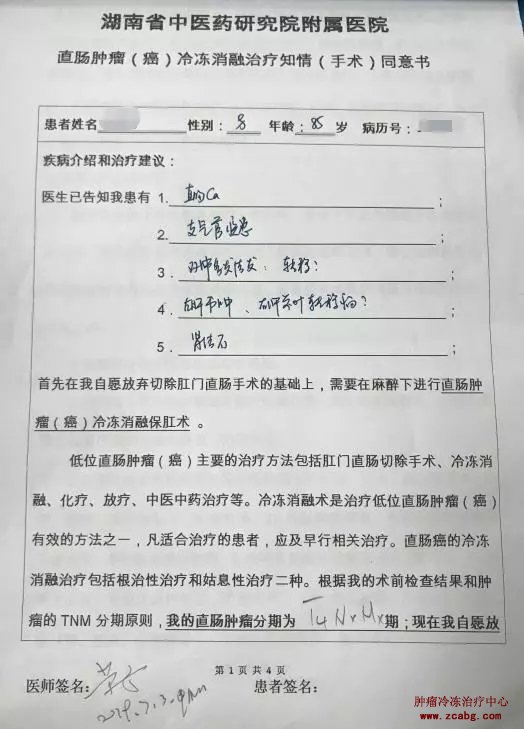 湖南省中医药研究院附属医院
直肠肿瘤（癌）冷冻消融治疗知情（手术）同意书
患者姓名 性别： 年龄：85 岁 病历号：
疾病介绍和治疗建议：
医生已告知我患有 1. 直肠Ca ；
2. 支气管哮喘 ；
3. 转移？ ；
4. ；
5. 肾结石 ；
首先在我自愿放弃切除肛门直肠手术的基础上，需要在麻醉下进行直肠肿
瘤（癌）冷冻消融保肛术 。
低位直肠肿瘤（癌）主要的治疗方法包括肛门直肠切除手术、冷冻消
融、化疗、放疗、中医中药治疗等。冷冻消融术是治疗低位直肠肿瘤（癌）
有效的方法之一，凡适合治疗的患者，应及早行相关治疗。直肠癌的冷冻
消融治疗包括根治性治疗和姑息性治疗二种。根据我的术前检查结果和肿
瘤的 TNM 分期原则，我的直肠肿瘤分期为 T4NxMx期；现在我自愿放
第 1 页 共 4 页
医师签名： 患者签名：
肿瘤冷冻治疗中心
www.zcabg.com